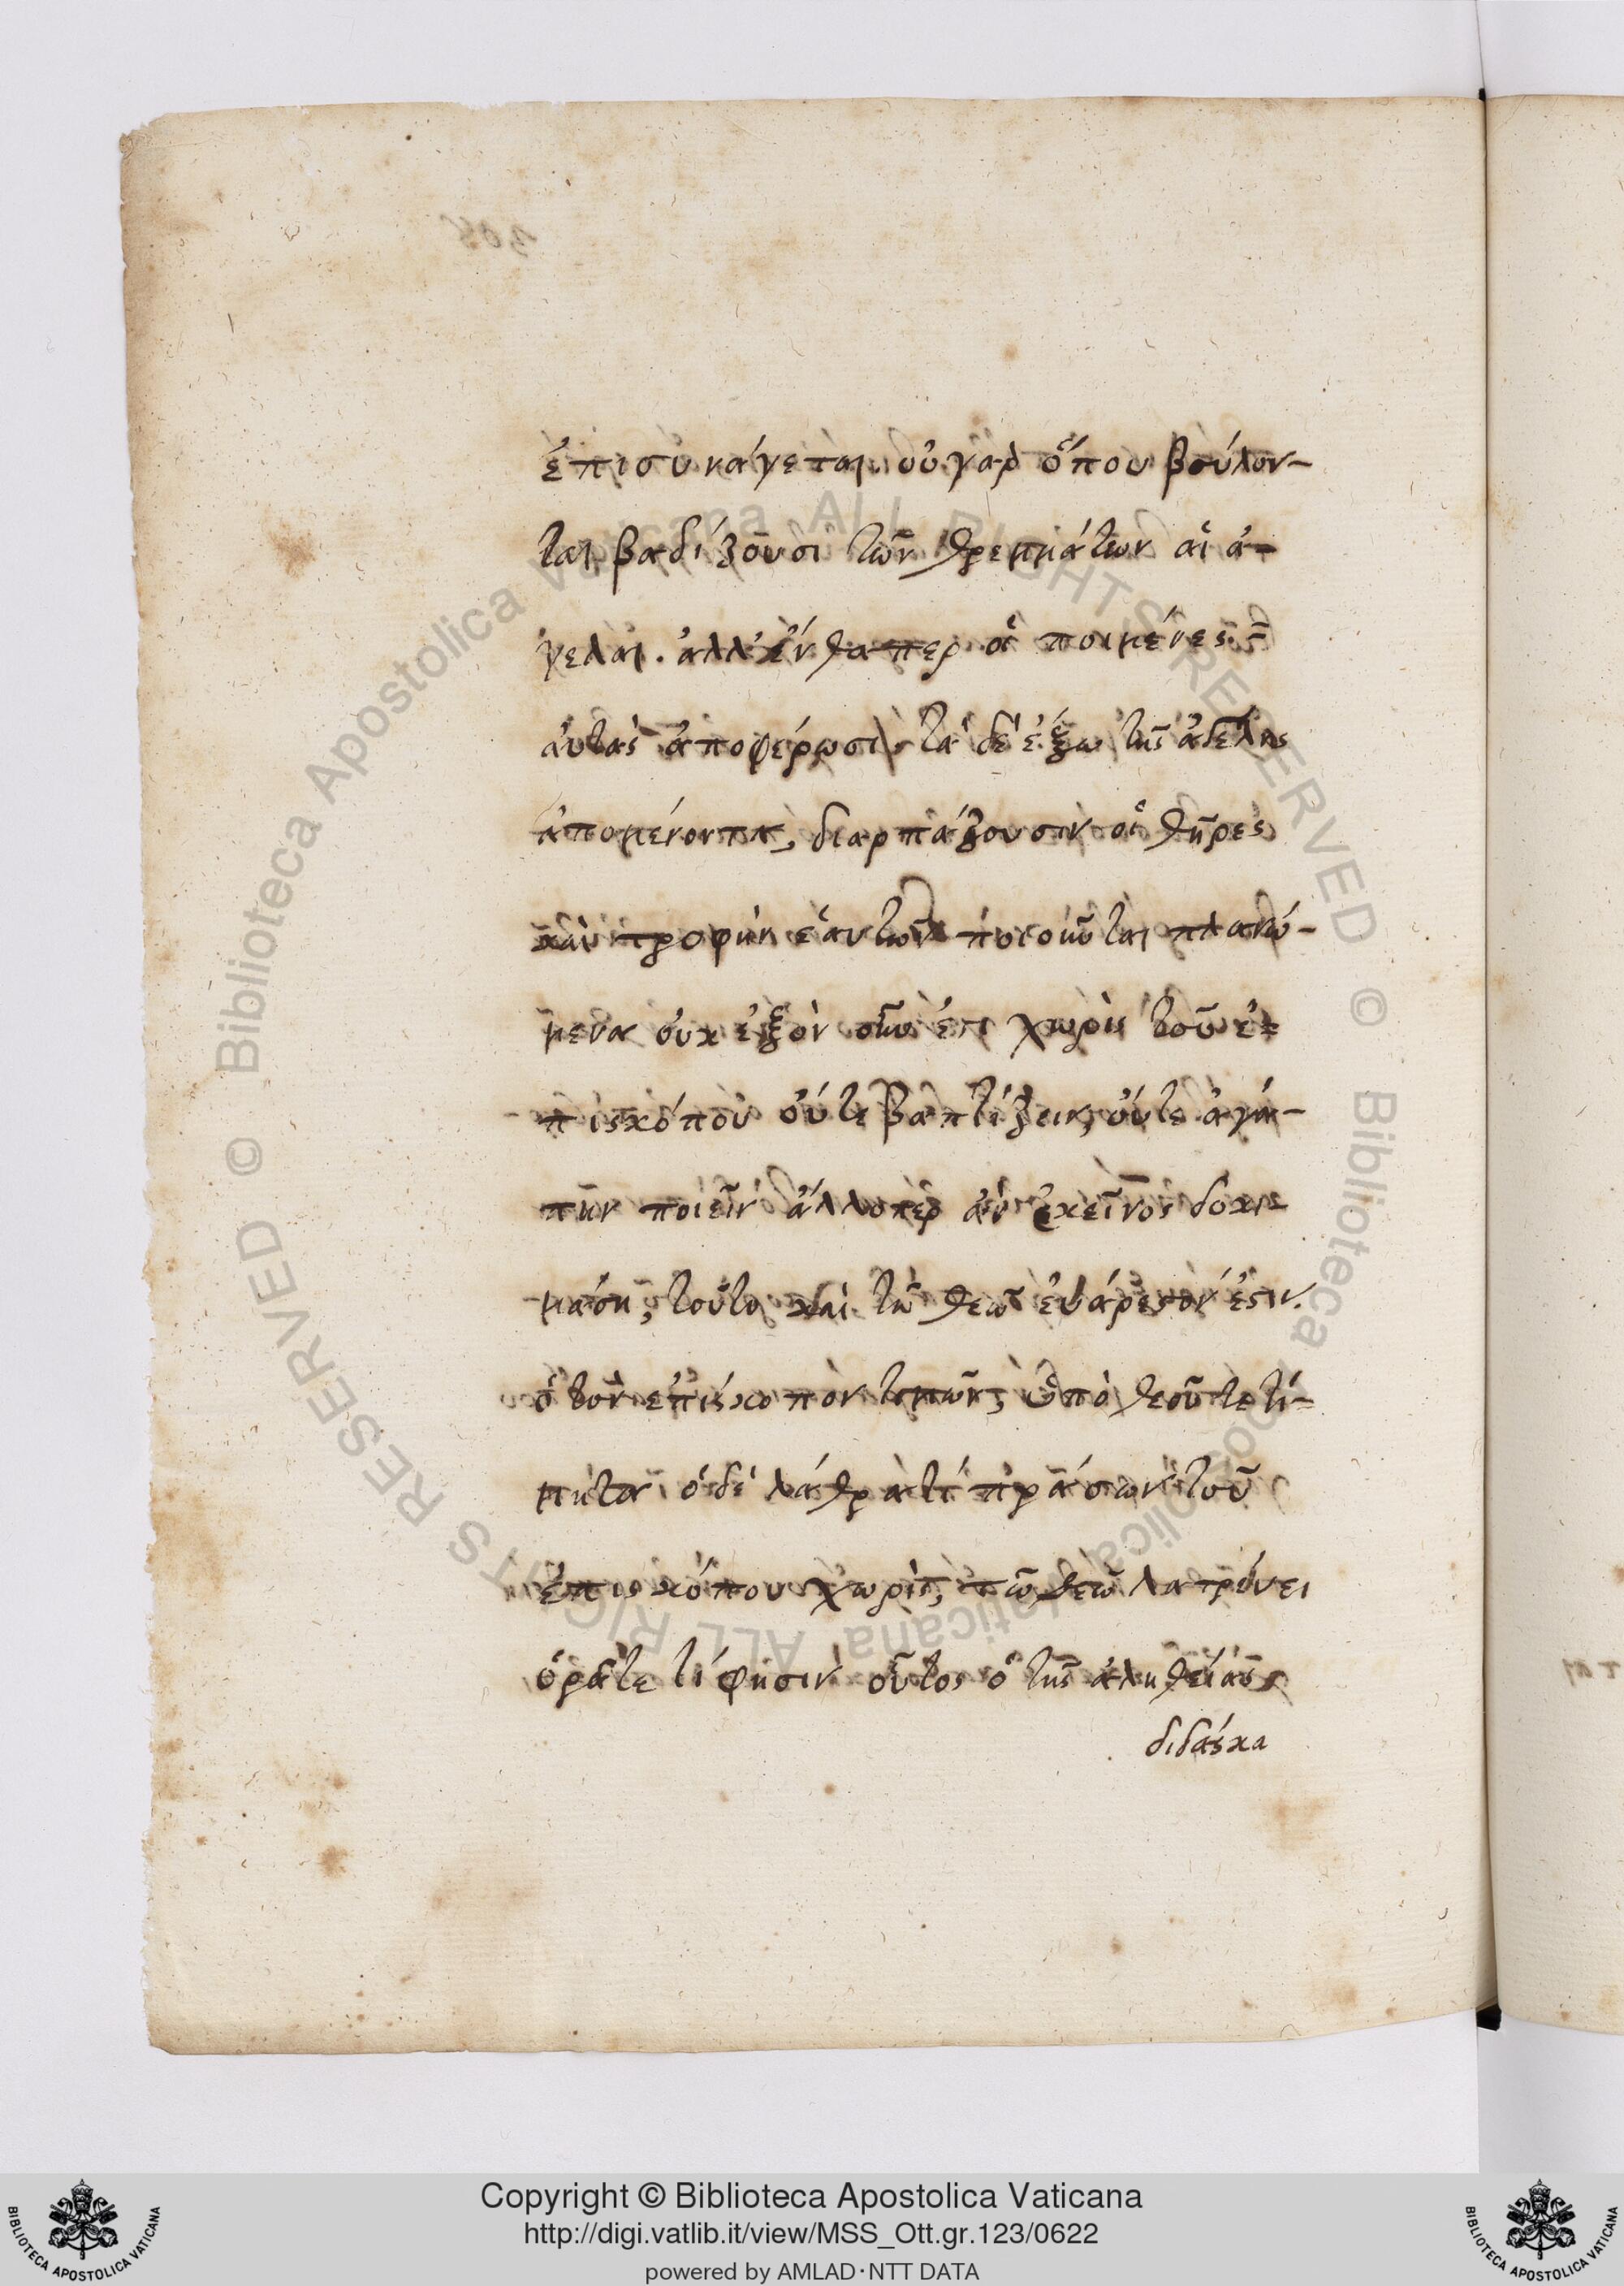 ἐπισυνάγεται. οὐ γὰρ ὅπου βούλον-
ται βαδίζουσι τῶν θρεμμάτων αἱ ἀ-
γέλαι. ἀλλ' ἔνθαπερ οἱ ποιμένες
αὐτὰς ἀποφέρωσι, τὰ δὲ ἔξω τῆς ἀγέλης
ἀπομένοντα, διαρπάζουσιν οἱ θῆρες
καὶ τροφὴν ἑαυτῶν ποιοῦνται πλανώ-
μενα οὐκ ἐξὸν οὖν ἐστι χωρὶς τοῦ ἐ-
πισκόπου οὔτε βαπτίζειν, οὔτε ἀγά-
πην ποιεῖν ἀλλ' ὅπερ ἂν ἐκεῖνος δοκι-
μάσῃ, τοῦτο καὶ τῷ θεῷ εὐάρεστόν ἐστιν.
ὁ τὸν ἐπίσκοπον τιμῶν, ὑπὸ θεοῦ τετί-
μηται ὁ δὲ λάθρα τί πράσσων τοῦ
ἐπισκόπου χωρὶς, τῷ θεῷ λατρεύει
ὁρᾶτε τί φησιν οὗτος ὁ τῆς ἀληθείας
διδάσκα
Copyright © Biblioteca Apostolica Vaticana
http://digi.vatlib.it/view/MSS_Ott.gr.123/0622
powered by AMLAD·NTT DATA
BIBLIOTECA APOSTOLICA VATICANA
BIBLIOTECA APOSTOLICA VATICANA
© Biblioteca Apostolica Vaticana ALL RIGHTS RESERVED
© Biblioteca Apostolica Vaticana ALL RIGHTS RESERVED